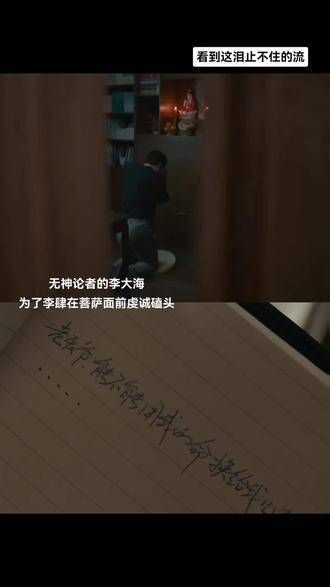 看到这泪止不住的流
无神论者的李大海
为了李肆在菩萨面前虔诚磕头
老天爷,能不能用我的命换给我儿
.....